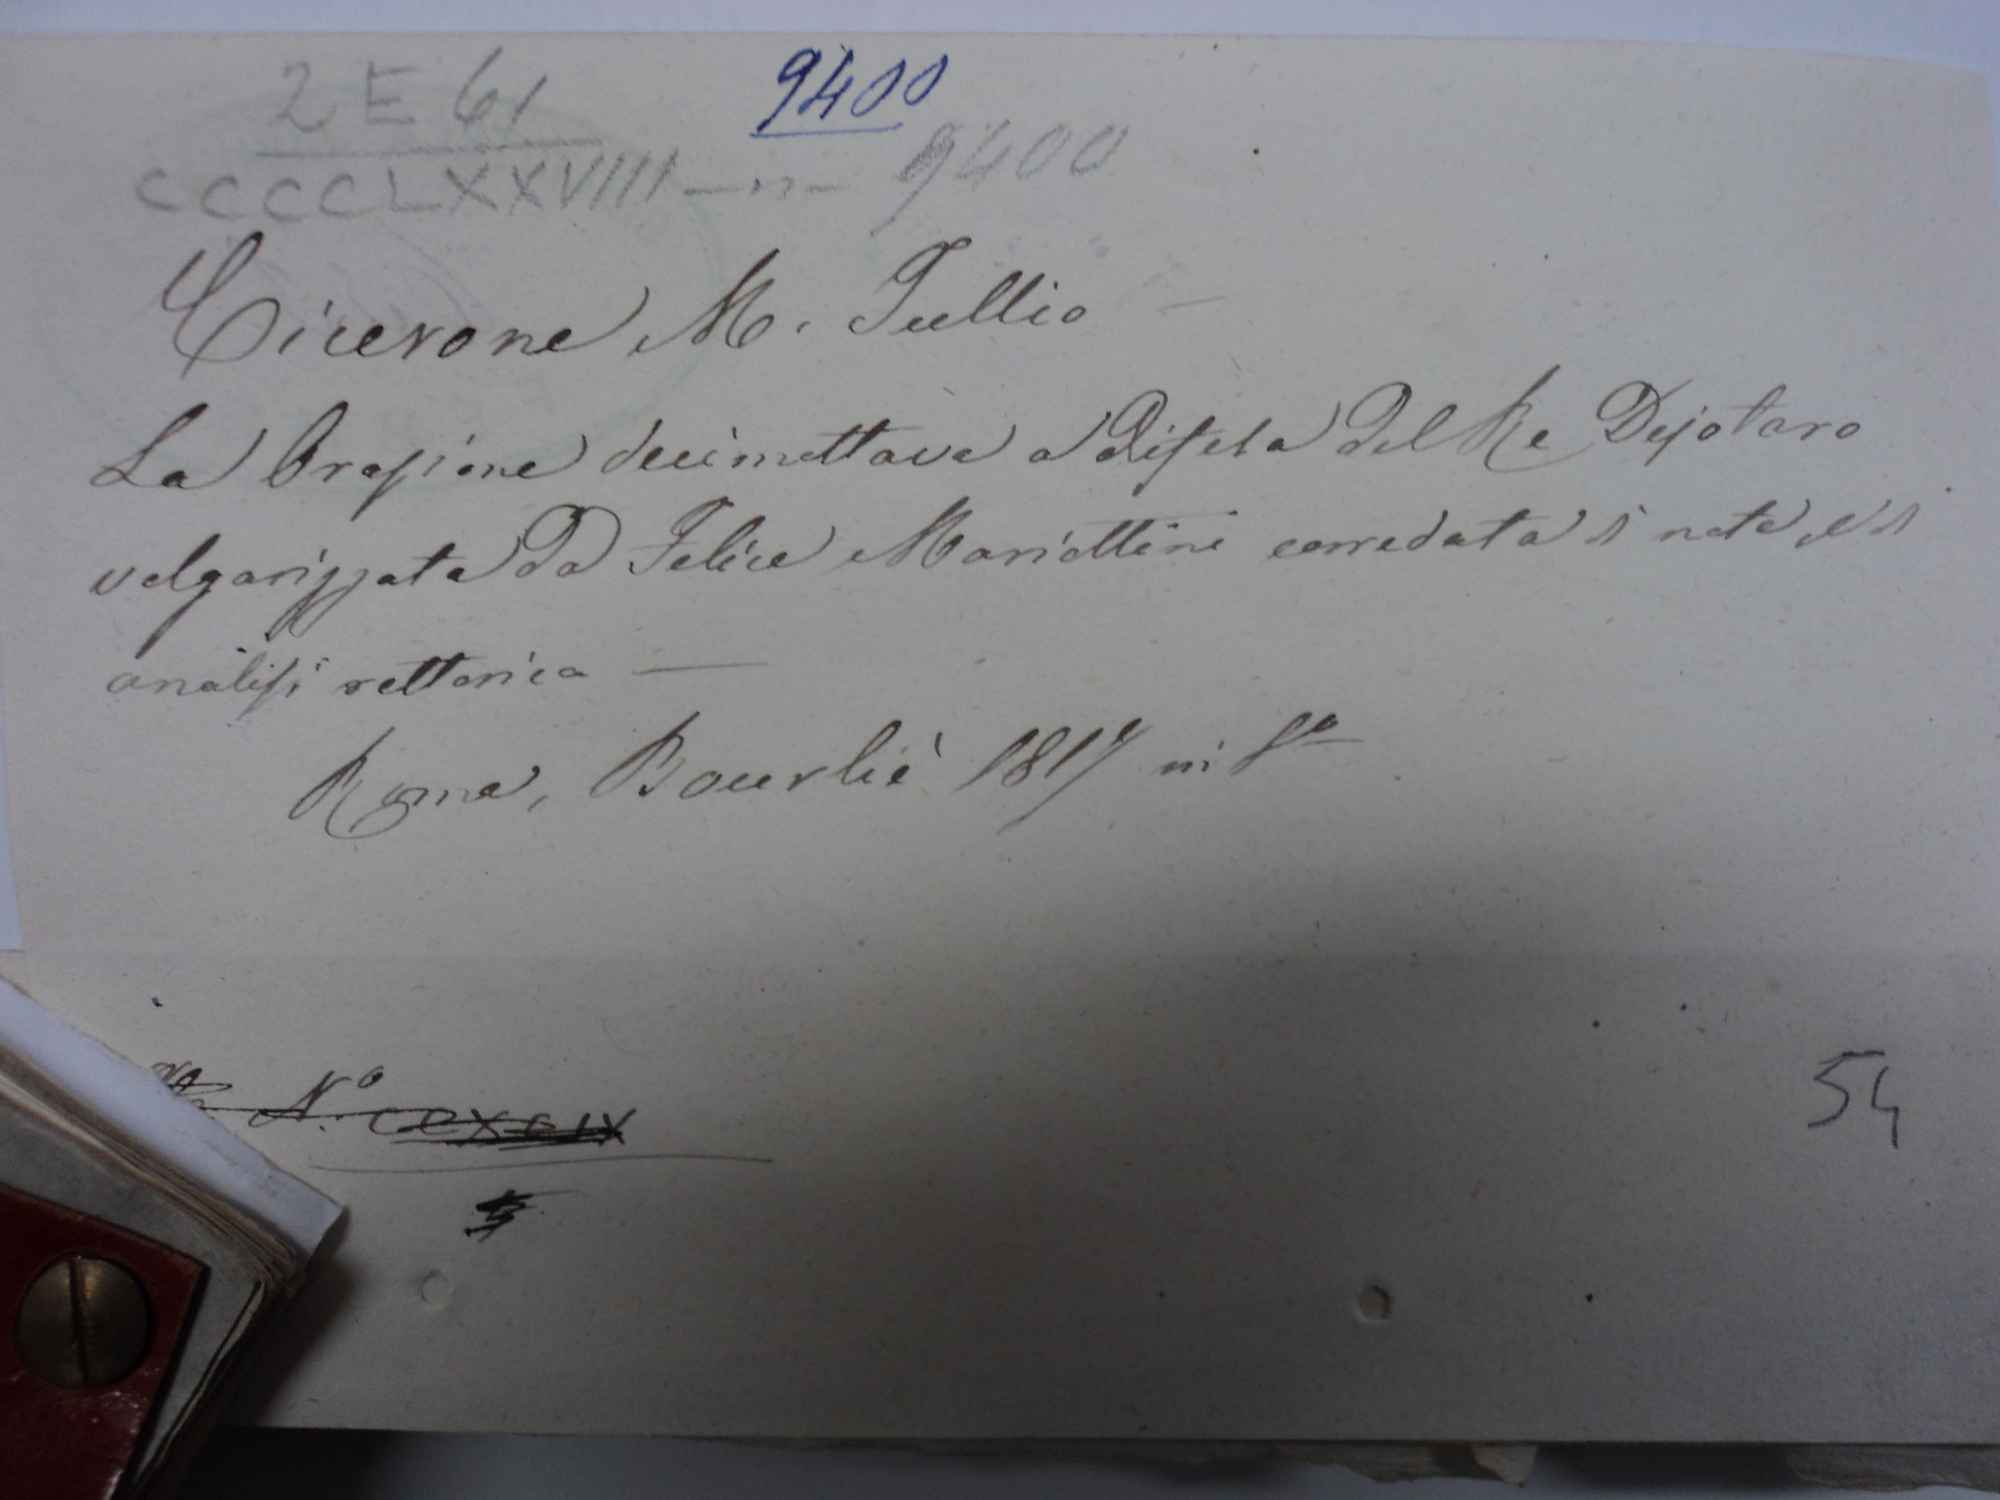 2 E 61
9400
CCCCLXXVIII — n — 9400
Cicerone M. Tullio —
La Orazione decimottava a difesa del Re Dejotaro
volgarizzata da Felice Mariottini corredata di note, e di
analisi rettorica —
Roma, Bourliè 1817 in 8º
Nº
54